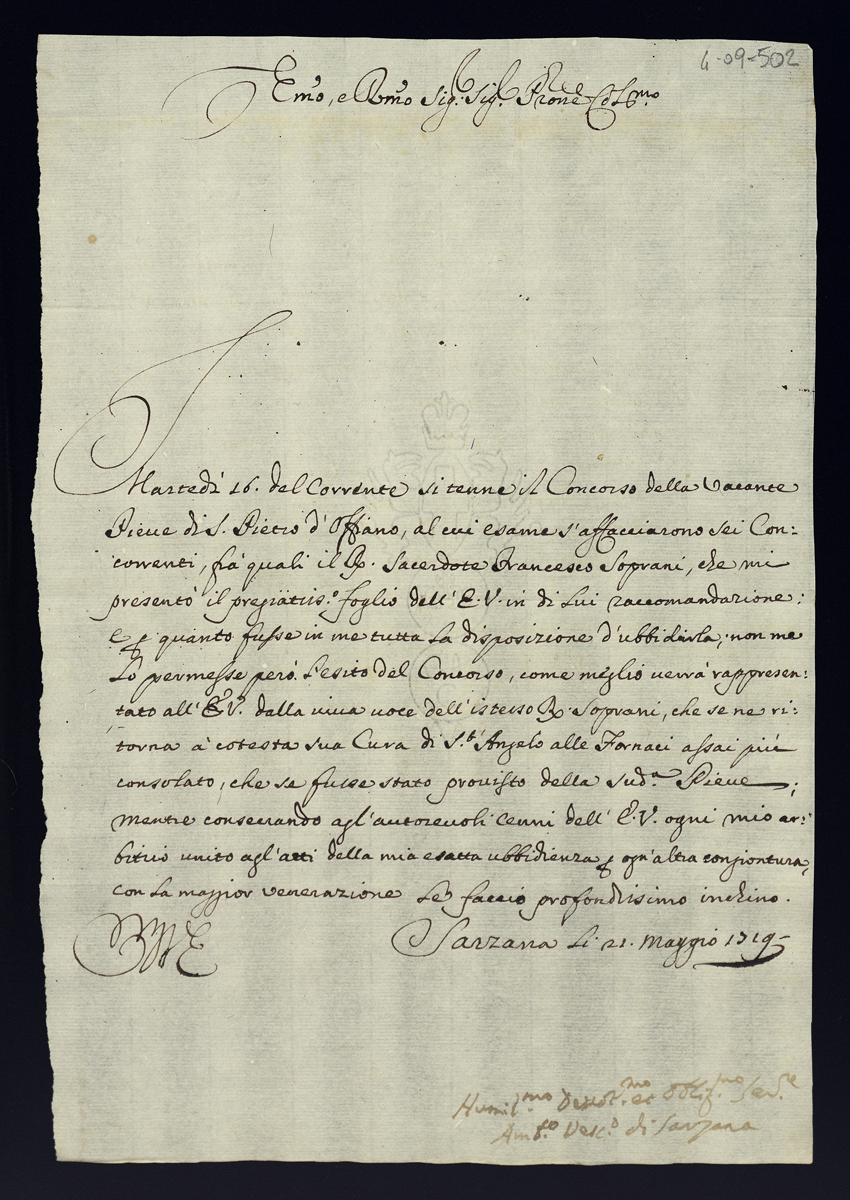 4-09-502
Em̃o, e Rm̃o Sig.r Sig.r Prone Col.mo
Martedì 16. del Corrente si tenne il Concorso della Vacante
Pieve di S. Pietro d'Offiano, al cui esame s'affacciarono sei Con:
correnti, frà quali il R. Sacerdote Francesco Soprani, che mi
presentò il pregiatiss.o foglio dell'E.V. in di lui raccomandazione:
e p quanto fusse in me tutta la disposizione d'ubbidirla, non me
lo permesse però l'esito del Concorso, come meglio verrà rappresen:
tato all'E.V. dalla viva voce dell'istesso R. Soprani, che se ne ri:
torna à cotesta sua Cura di S.t' Angelo alle Fornaci assai più
consolato, che se fusse stato provisto della sud.a Pieve;
mentre consecrando agl'autorevoli cenni dell'E.V. ogni mio ar:
bitrio unito agl'atti della mia esatta ubbidienza p ogn'altra congiontura,
con la maggior venerazione le faccio profondissimo inchino.
Sarzana li 21. Maggio 1719
Humil.mo Devot.mo et Obblig.mo Ser.re
Amb.o Vesc.o di Sarzana